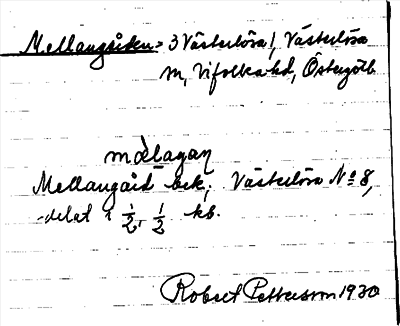 Mellangården = 3 Västerlösa!, Västerlösa
sn, Vifolka hd, Östergötl.
màlagaɲ
Mellangård bek. Västerlösa No 8,
delat i 1/2, 1/2 kb.
Robert Pettersson 1930